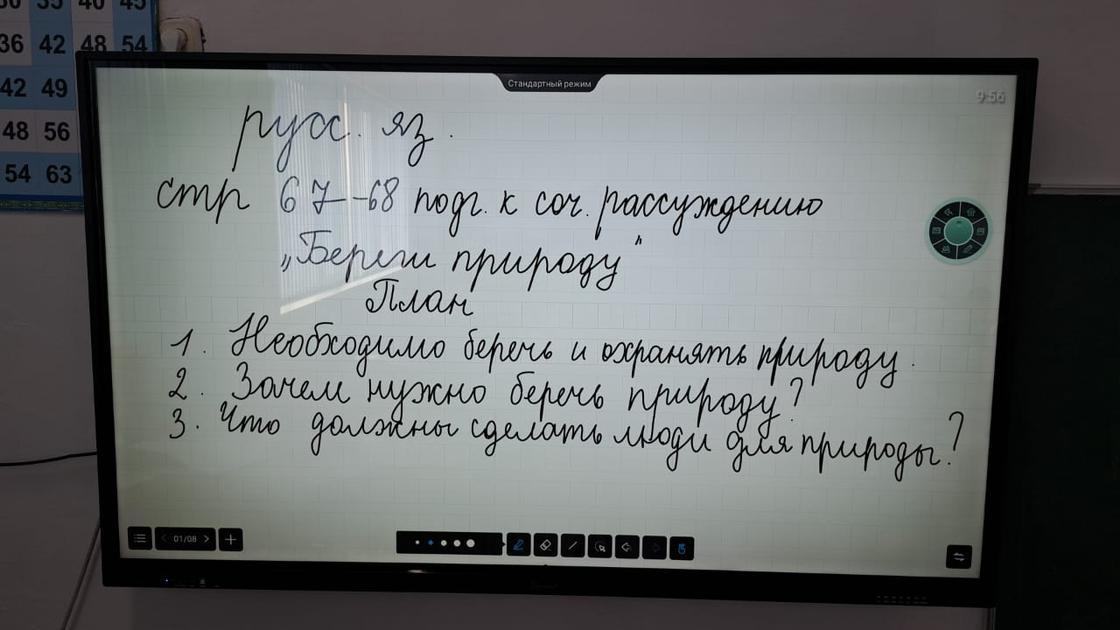 30 35 40 45
36 42 48 54
42 49
48 56
54 63
Стандартный режим
9:56
русс. яз.
стр 67--68 подг. к соч. рассуждению
„Береги природу"
План
1. Необходимо беречь и охранять природу.
2. Зачем нужно беречь природу?
3. Что должны сделать люди для природы?
01/08